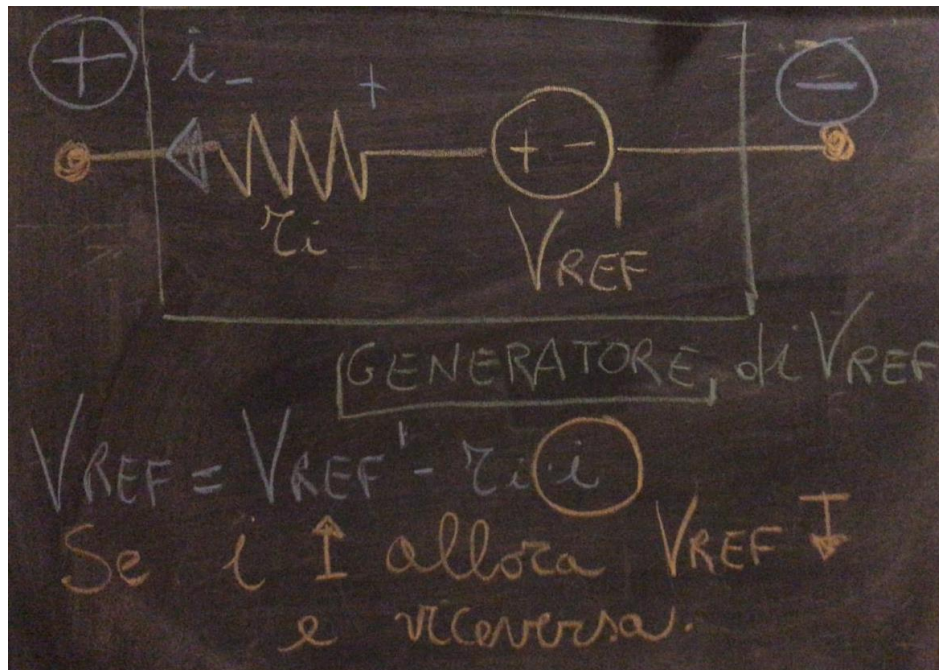 + i - + -
+ -
ri
V'REF
GENERATORE di VREF
VREF = V'REF - ri · i
Se i ↑ allora VREF ↓
e viceversa.